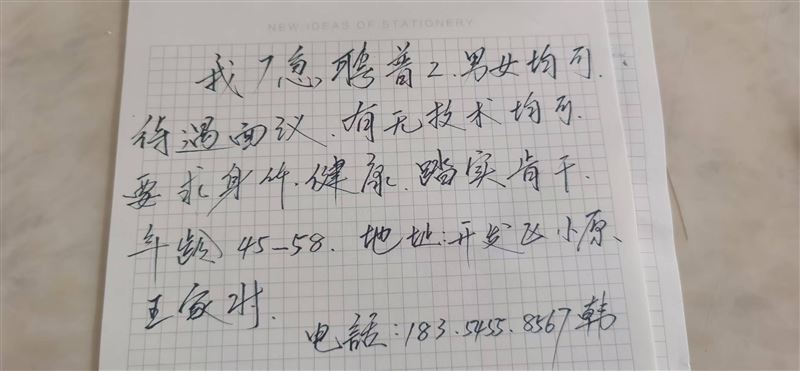 NEW IDEAS OF STATIONERY
我厂急聘普工.男女均可.
待遇面议.有无技术均可.
要求身体.健康.踏实肯干.
年龄45-58.地址:开发区小原、
王家村.
电話:183.5455.8567韩